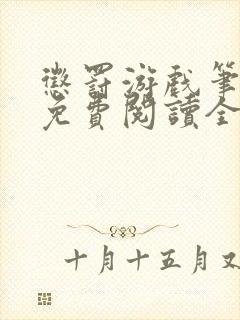 懲罰游戲筆
免費閱讀全
十月十五月又